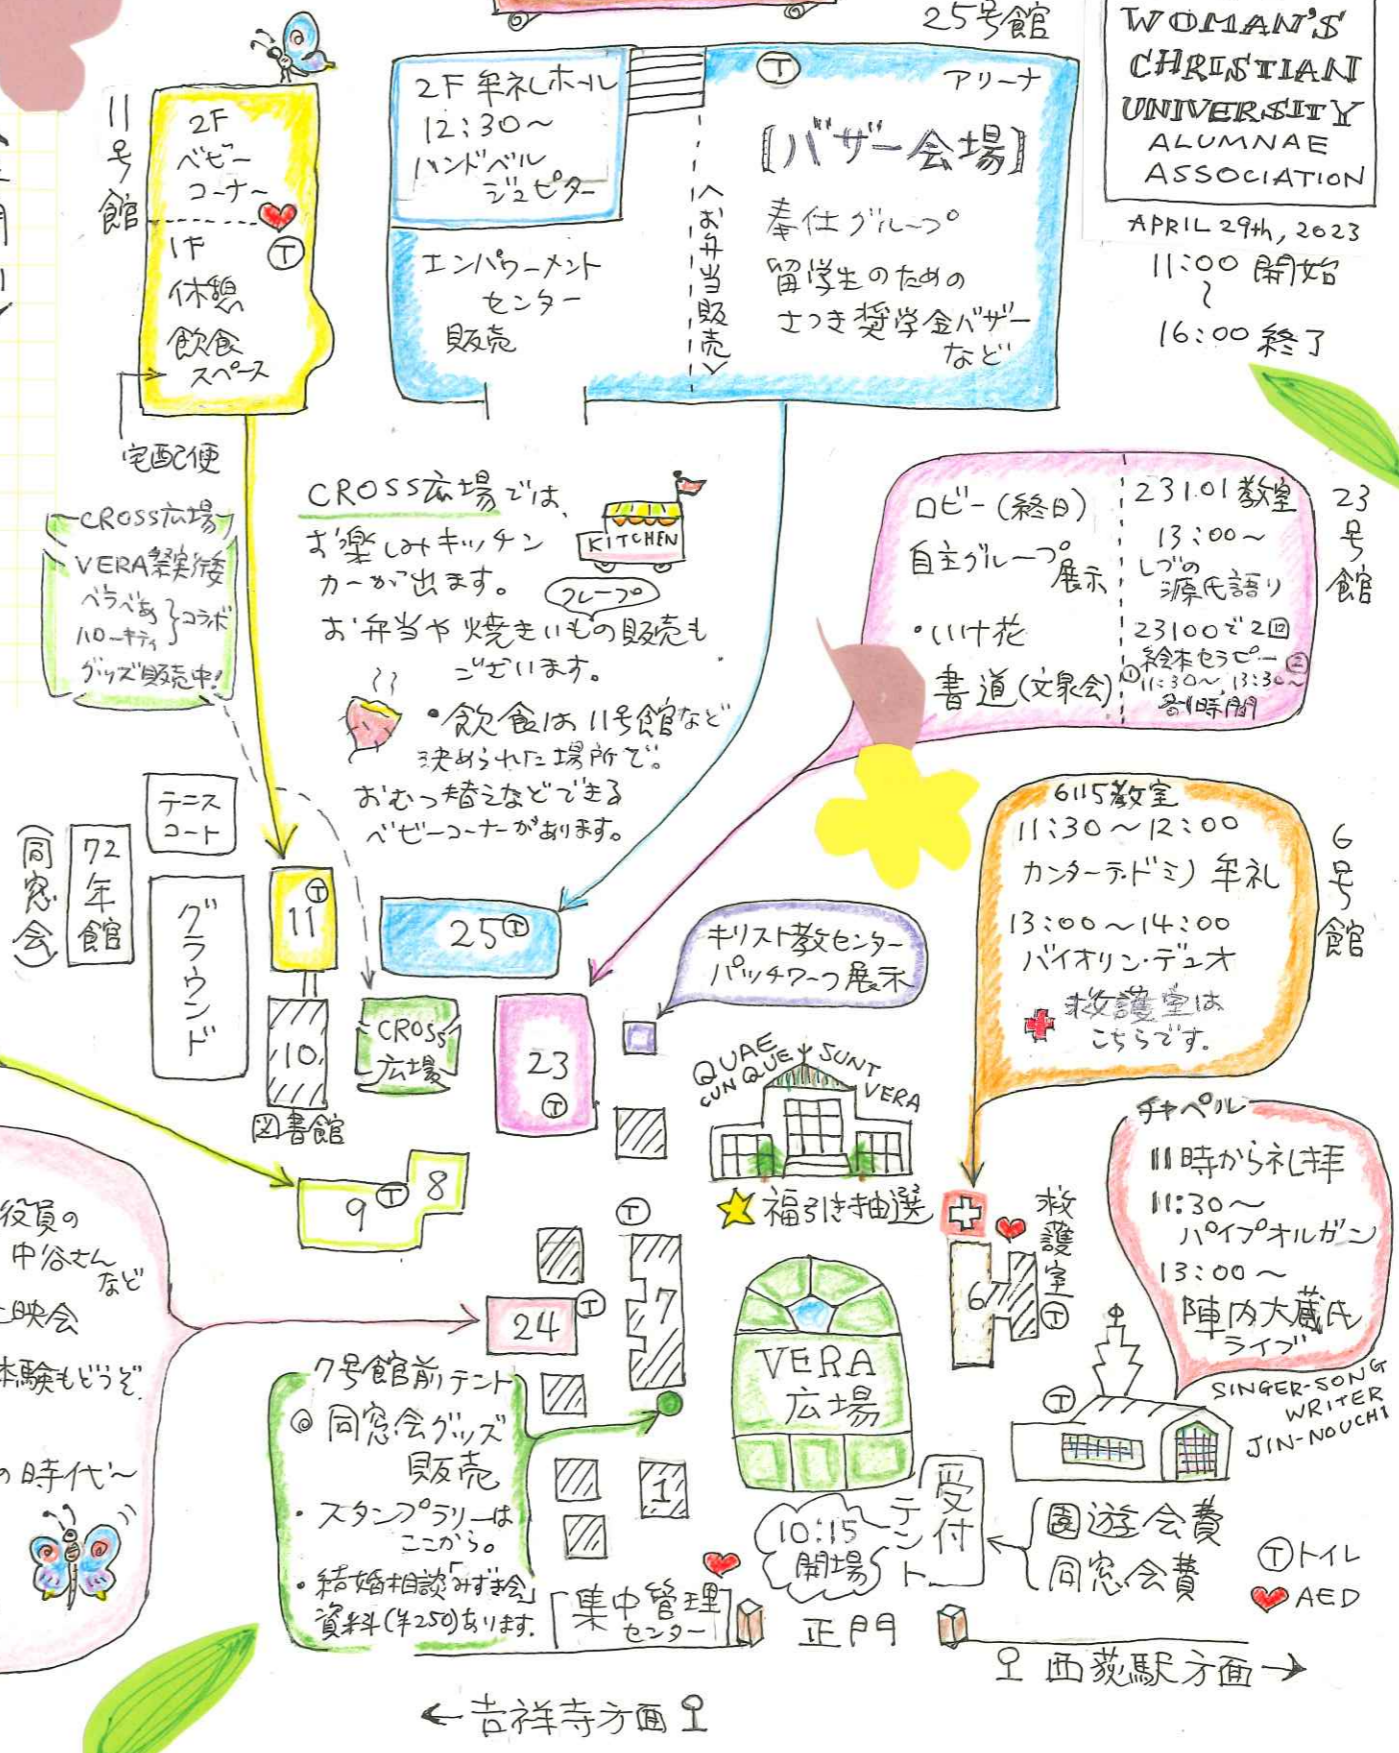 25号館
WOMAN'S
CHRISTIAN
UNIVERSITY
ALUMNAE
ASSOCIATION
APRIL 29th, 2023
11:00 開始
〜
16:00 終了
11号館
2F
ベビー
コーナー
1F
T
休憩
飲食
スペース
宅配便
2F 牟礼ホール
12:30〜
ハンドベル
ジュピター
エンパワーメント
センター
販売
〈お弁当販売〉
T
アリーナ
【バザー会場】
奉仕グループ
留学生のための
さつき奨学金バザー
など
CROSS広場
VERA祭実行委
ベラベあ
ハローキティ
コラボ
グッズ販売中!
CROSS広場では、
お楽しみキッチン
カーが出ます。
KITCHEN
クレープ
お弁当や焼きいもの販売も
ございます。
・飲食は11号館など
決められた場所で。
おむつ替えなどできる
ベビーコーナーがあります。
23号館
ロビー(終日)
自主グループ
展示
・いけ花
書道(文泉会)
23101教室
13:00〜
しづの
源氏語り
23100で2回
絵本セラピー
①11:30〜, ②13:30〜
各1時間
6号館
6115教室
11:30〜12:00
カンターテ・ドミノ 牟礼
13:00〜14:00
バイオリン・デュオ
救護室は
こちらです。
テニス
コート
72年館
(同窓会)
グラウンド
11 T
25 T
キリスト教センター
パッチワーク展示
10
図書館
CROSS
広場
23
T
QUAE
CUNQUE
SUNT
VERA
福引き抽選
9 T
8
T
7
24 T
救護室
T
6
チャペル
11時から礼拝
11:30〜
パイプオルガン
13:00〜
陣内大蔵氏
ライブ
SINGER-SONG
WRITER
JIN-NOUCHI
T
役員の
中谷さん
など
上映会
体験もどうぞ.
の時代〜
7号館前テント
◎同窓会グッズ
販売
・スタンプラリーは
ここから。
・結婚相談「みずき会」
資料(¥250)あります.
1
VERA
広場
10:15
開場
受付
テント
園遊会費
同窓会費
T トイレ
AED
集中管理
センター
正門
西荻駅方面→
←吉祥寺方面